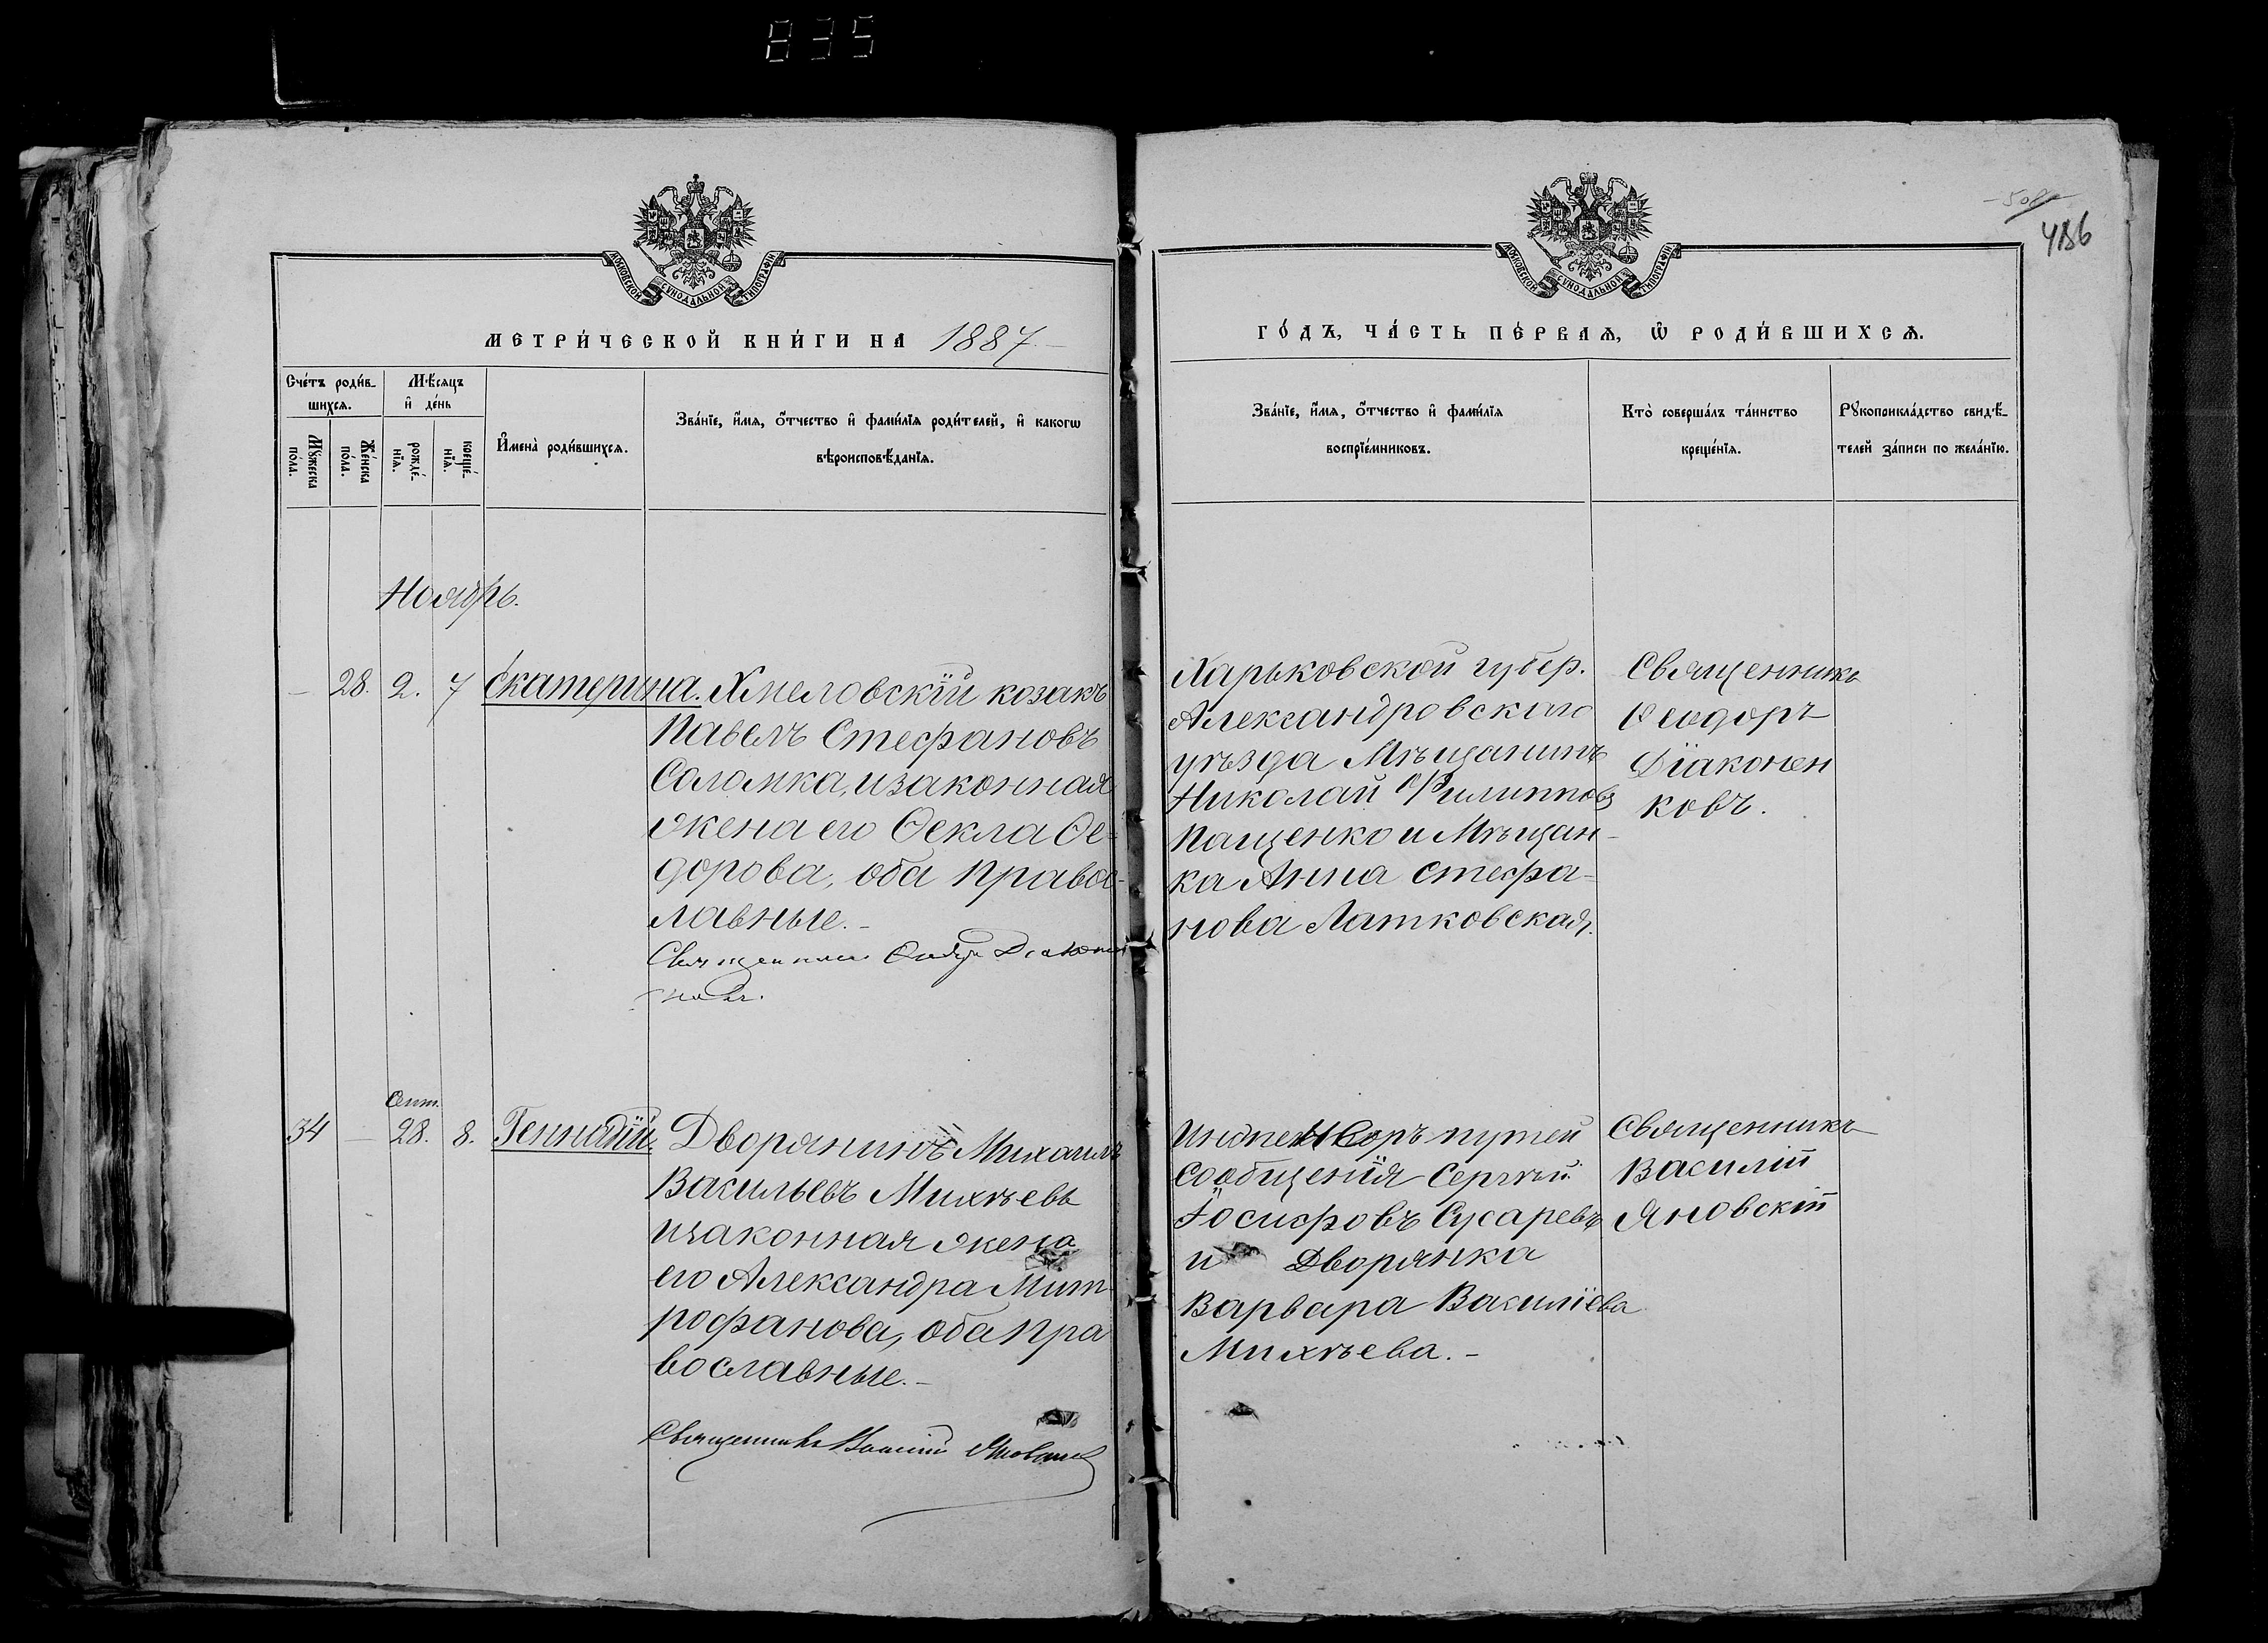 835
486
МОСКОВСКОЙ СѴНОДАЛЬНОЙ ТИПОГРАФІИ
МЕТРИ́ЧЕСКОЙ КНИ́ГИ НА 1887
Сче́тъ роди́вшихсѧ.
Мꙋ́жеска по́ла.
Же́нска по́ла.
Мѣ́сѧцъ и҆ де́нь
рожде́нїѧ.
креще́нїѧ.
И҆мена̀ роди́вшихсѧ.
Зва́нїе, и҆́мѧ, ѻ҆́тчество и҆ фами́лїѧ роди́телей, и҆ какогѡ
вѣроисповѣ́данїѧ.
Ноябрь.
28. 2. 7 Екатерина. Хмеловскій козакъ
Павелъ Стефановъ
Соломка, и законная
жена его Ѳекла Ѳе-
дорова, оба правос-
лавные.-
Священникъ
34 — Сент. 28. 8. Геннадій. Дворянинъ Михаилъ
Васильевъ Михѣевъ
и законная жена
его Александра Мит
рофанова, оба пра
вославные.-
Священникъ Василій Яновскій
МОСКОВСКОЙ СѴНОДАЛЬНОЙ ТИПОГРАФІИ
ГО́ДЪ, ЧА́СТЬ ПЕ́РВАѦ, Ѡ҆ РОДИ́ВШИХСѦ.
Зва́нїе, и҆́мѧ, ѻ҆́тчество и҆ фами́лїѧ
воспрїе́мниковъ.
Кто̀ соверша́лъ та́инство
креще́нїѧ.
Рꙋкоприкла́дство свидѣ́-
телей за́писи по жела́нїю.
Харьковской губер.
Александровскаго
уѣзда Мѣщанинъ
Николай Филипповъ
Пащенко и Мѣщан-
ка Анна Стефа-
нова Латковская.
Священникъ
Ѳеодоръ
Діаконен
ковъ.
Инспекторъ путей
сообщенія Сергѣй
Іосифовъ Сусаревъ
и Дворянка
Варвара Василіева
Михѣева.-
Священникъ
Василій
Яновскій